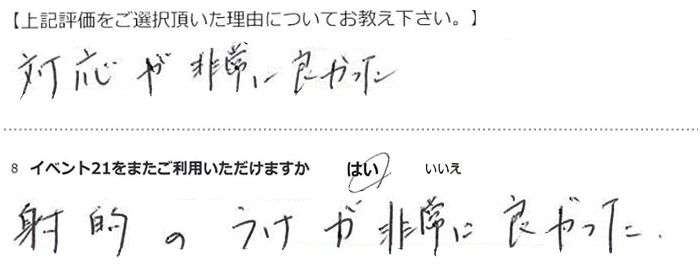 【上記評価をご選択頂いた理由についてお教え下さい。】
対応が非常に良かった
8 イベント21をまたご利用いただけますか はい いいえ
射的のうけが非常に良かった.